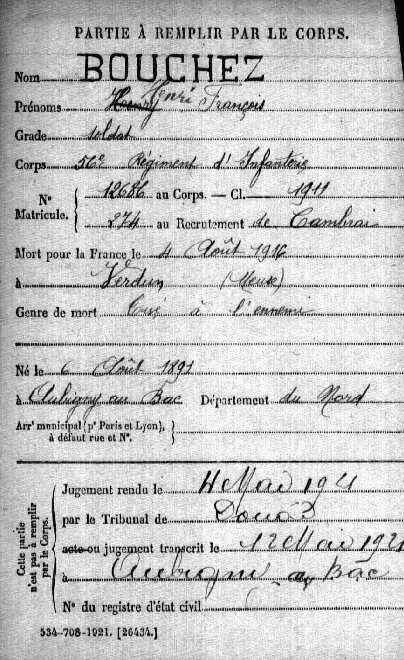 PARTIE À REMPLIR PAR LE CORPS.
Nom BOUCHEZ
Prénoms Henry Henri François
Grade soldat
Corps 56e Régiment d'Infanterie
N° Matricule. { 12686 au Corps. — Cl. 1911
274 au Recrutement de Cambrai
Mort pour la France le 4 Août 1916
à Verdun (Meuse)
Genre de mort Tué à l'ennemi
Né le 6 Août 1891
à Aubigny au Bac Département du Nord
Arrt municipal (pr Paris et Lyon), }
à défaut rue et N°.
Cette partie n'est pas à remplir par le Corps.
Jugement rendu le 4 Mai 1921
par le Tribunal de Douai
acte ou jugement transcrit le 12 Mai 1921
à Aubigny au Bac
N° du registre d'état civil
534-708-1921. [26434.]